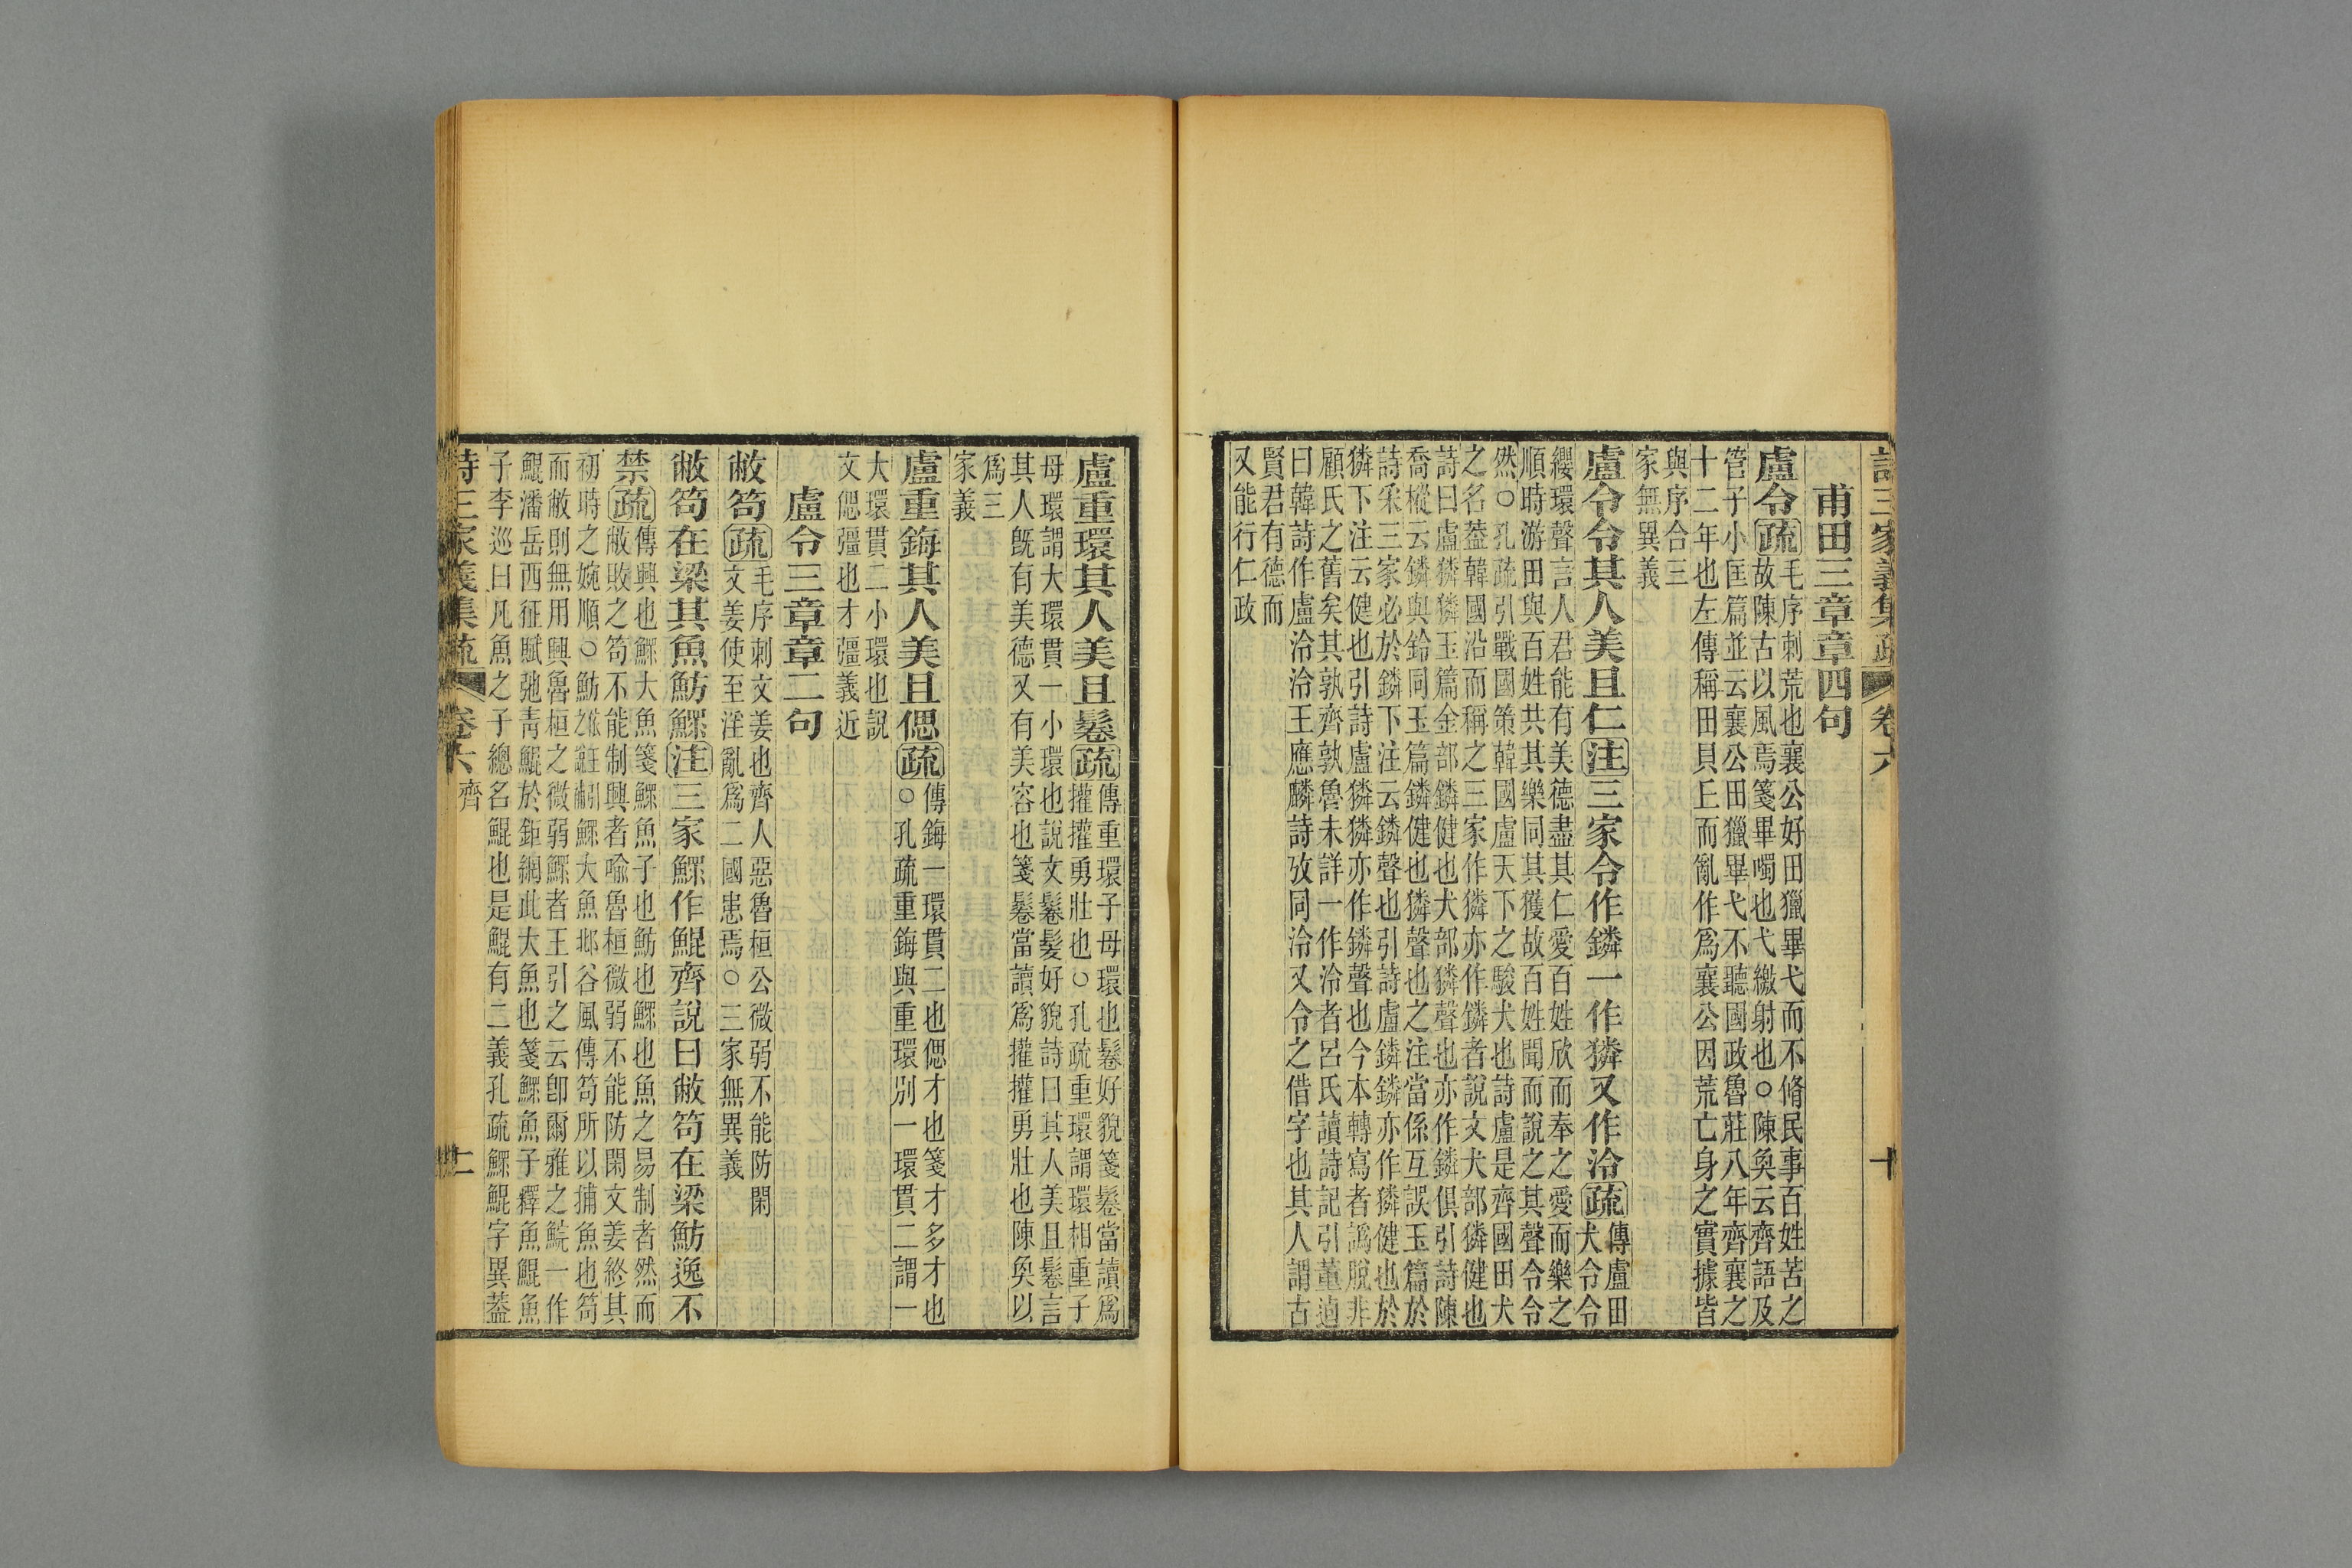 詩三家義集疏 卷六 十
甫田三章章四句
盧令疏毛序刺荒也襄公好田獵畢弋而不脩民事百姓苦之
故陳古以風焉箋畢噣也弋繳射也○陳奐云齊語及
管子小匡篇並云襄公田獵畢弋不聽國政魯莊八年齊襄之
十二年也左傳稱田貝丘而亂作爲襄公因荒亡身之實據皆
與序合三
家無異義
盧令令其人美且仁注三家令作鏻一作獜又作泠疏傳盧田
犬令令
纓環聲言人君能有美德盡其仁愛百姓欣而奉之愛而樂之
順時游田與百姓共其樂同其獲故百姓聞而說之其聲令令
然○孔疏引戰國策韓國盧天下之駿犬也詩盧是齊國田犬
之名蓋韓國沿而稱之三家作獜亦作鏻者說文犬部獜健也
詩曰盧獜獜玉篇金部鏻健也犬部獜聲也亦作鏻俱引詩陳
喬樅云鏻與鈴同玉篇鏻健也獜聲也之注當係互誤玉篇於
詩采三家必於鏻下注云鏻聲也引詩盧鏻鏻亦作獜健也於
獜下注云健也引詩盧獜獜亦作鏻聲也今本轉寫者譌脫非
顧氏之舊矣其孰齊孰魯未詳一作泠者呂氏讀詩記引董逌
曰韓詩作盧泠泠王應麟詩攷同泠又令之借字也其人謂古
賢君有德而
又能行仁政
盧重環其人美且鬈疏傳重環子母環也鬈好貌箋鬈當讀爲
㩲㩲勇壯也○孔疏重環謂環相重子
母環謂大環貫一小環也說文鬈髮好貌詩曰其人美且鬈言
其人既有美德又有美容也箋鬈當讀爲㩲㩲勇壯也陳奐以
爲三
家義
盧重鋂其人美且偲疏傳鋂一環貫二也偲才也箋才多才也
○孔疏重鋂與重環別一環貫二謂一
大環貫二小環也說
文偲彊也才彊義近
盧令三章章二句
敝笱疏毛序刺文姜也齊人惡魯桓公微弱不能防閑
文姜使至淫亂爲二國患焉○三家無異義
敝笱在梁其魚魴鰥注三家鰥作鯤齊說曰敝笱在梁魴逸不
禁疏傳興也鰥大魚箋鰥魚子也魴也鰥也魚之易制者然而
敝敗之笱不能制興者喻魯桓微弱不能防閑文姜終其
初時之婉順○魴㳄詳鰥大魚邶谷風傳笱所以捕魚也笱
而敝則無用興魯桓之微弱鰥者王引之云卽爾雅之鯇一作
鯤潘岳西征賦弛青鯤於鉅網此大魚也箋鰥魚子釋魚鯤魚
子李巡曰凡魚之子總名鯤也是鯤有二義孔疏鰥鯤字異蓋
詩三家義集疏 卷六 齊 十一